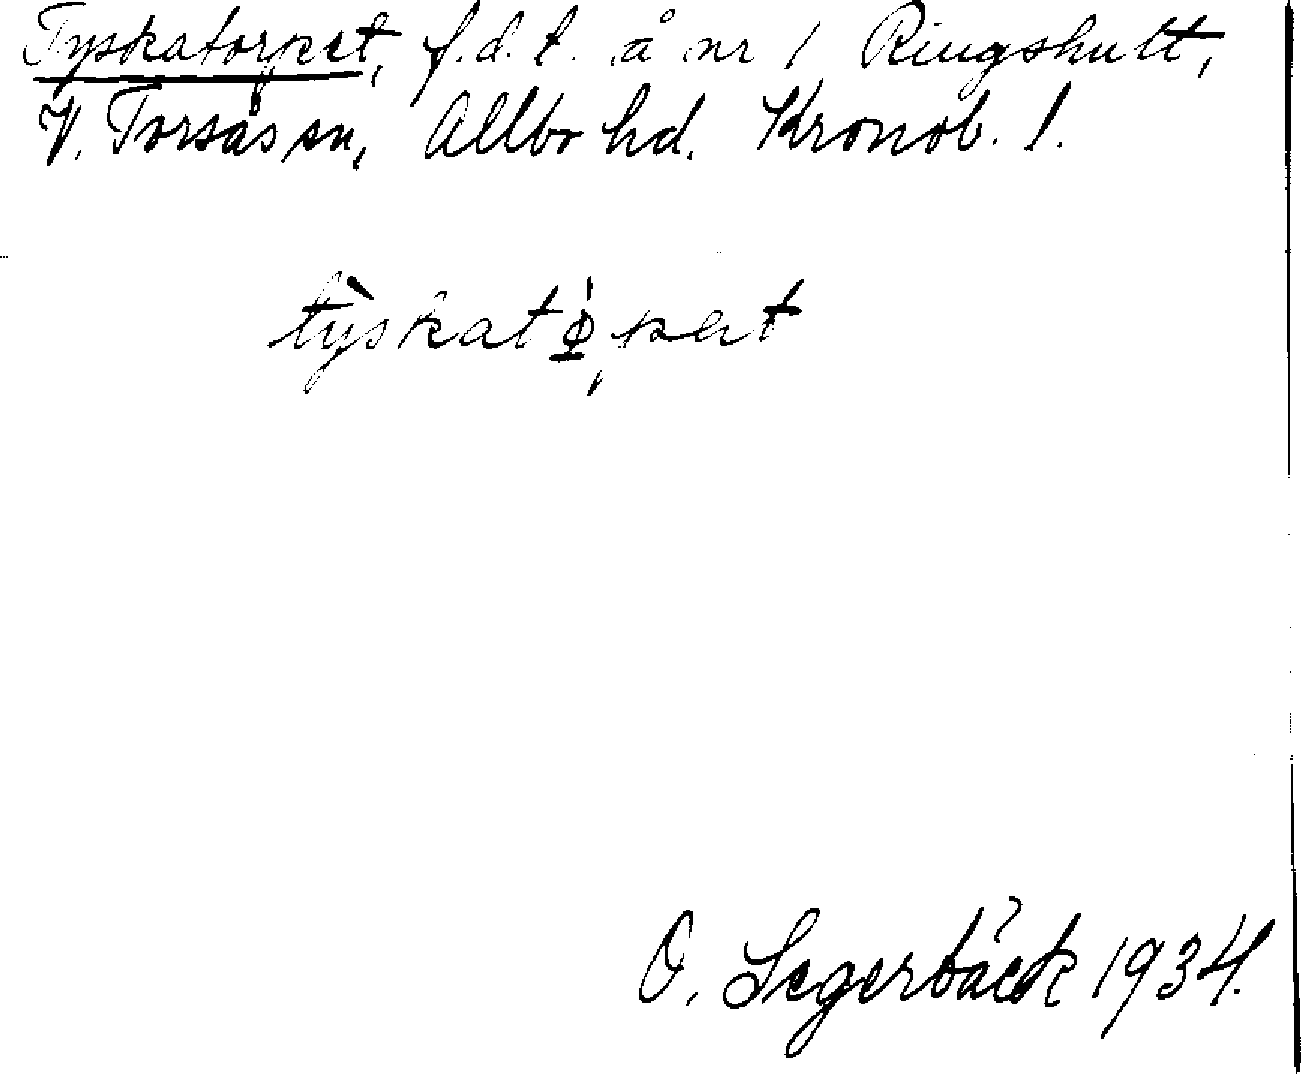 Tyskatorpet, f.d.t. å nr 1 Ringshult,
V. Torsås sn, Allbo hd. Kronob. l.
tỳskatǿ̱pət
O. Segerbäck 1934.